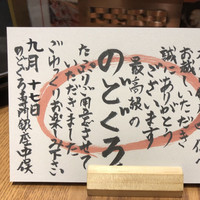 お越しいただき
誠にありがとう
ございます
最高級の
のどぐろ
たっぷりご用意させて
いただきました
ごゆっくりお楽しみ下さい
九月 十七日
のどぐろ
銀座中俣